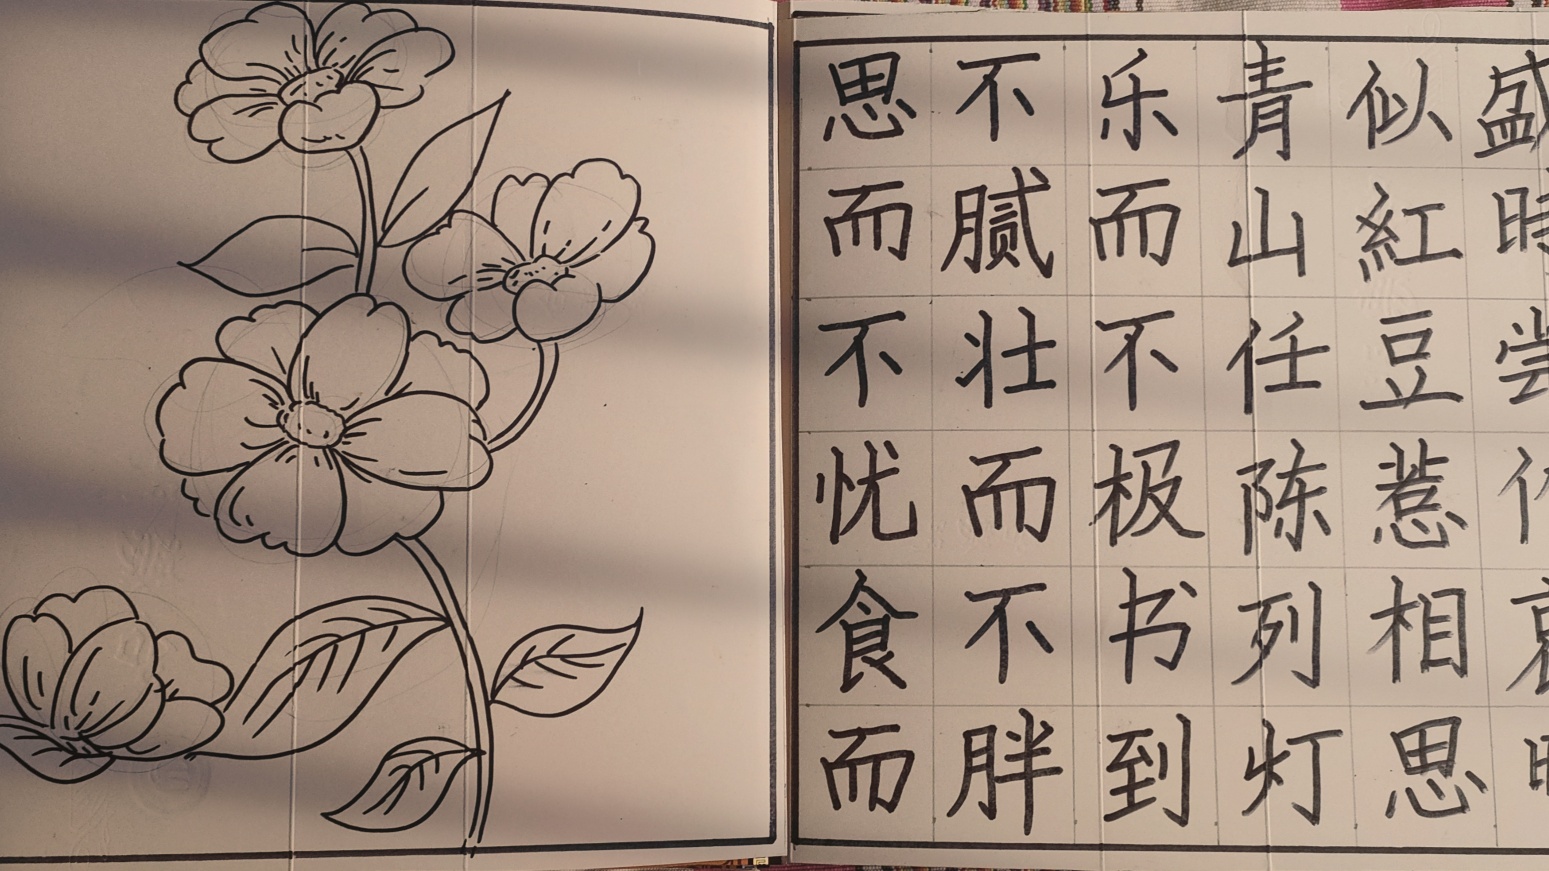 思而不忧食而
不腻壮而不胖
乐而不极书到
青山任陈列灯
似紅豆惹相思
盛時尝